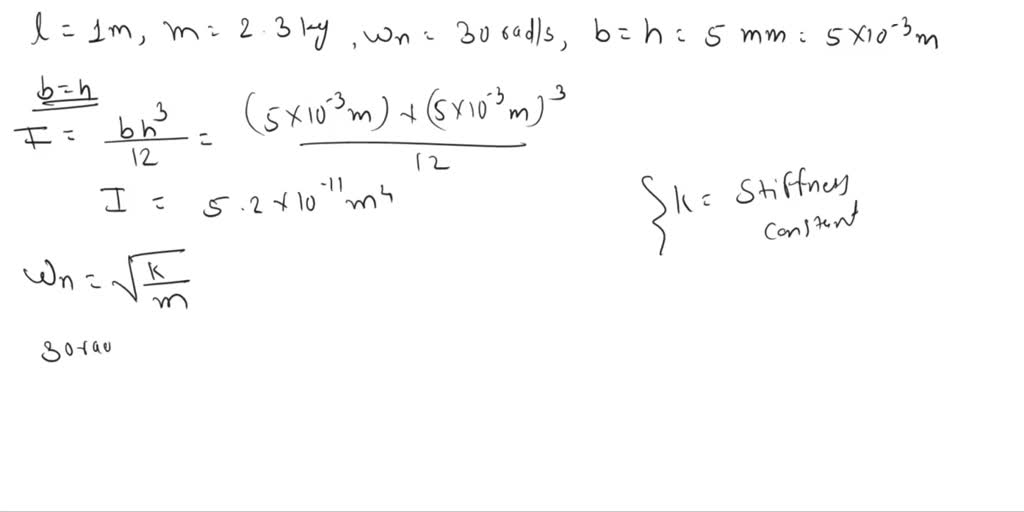 l = 1m, m = 2.3 kg, ωn = 30 rad/s, b = h = 5 mm = 5×10⁻³ m
b=h
I = bh³/12 = (5×10⁻³m) × (5×10⁻³m)³/12
I = 5.2×10⁻¹¹ m⁴
{ k = Stiffness
constant
ωn = √k/m
30 rad